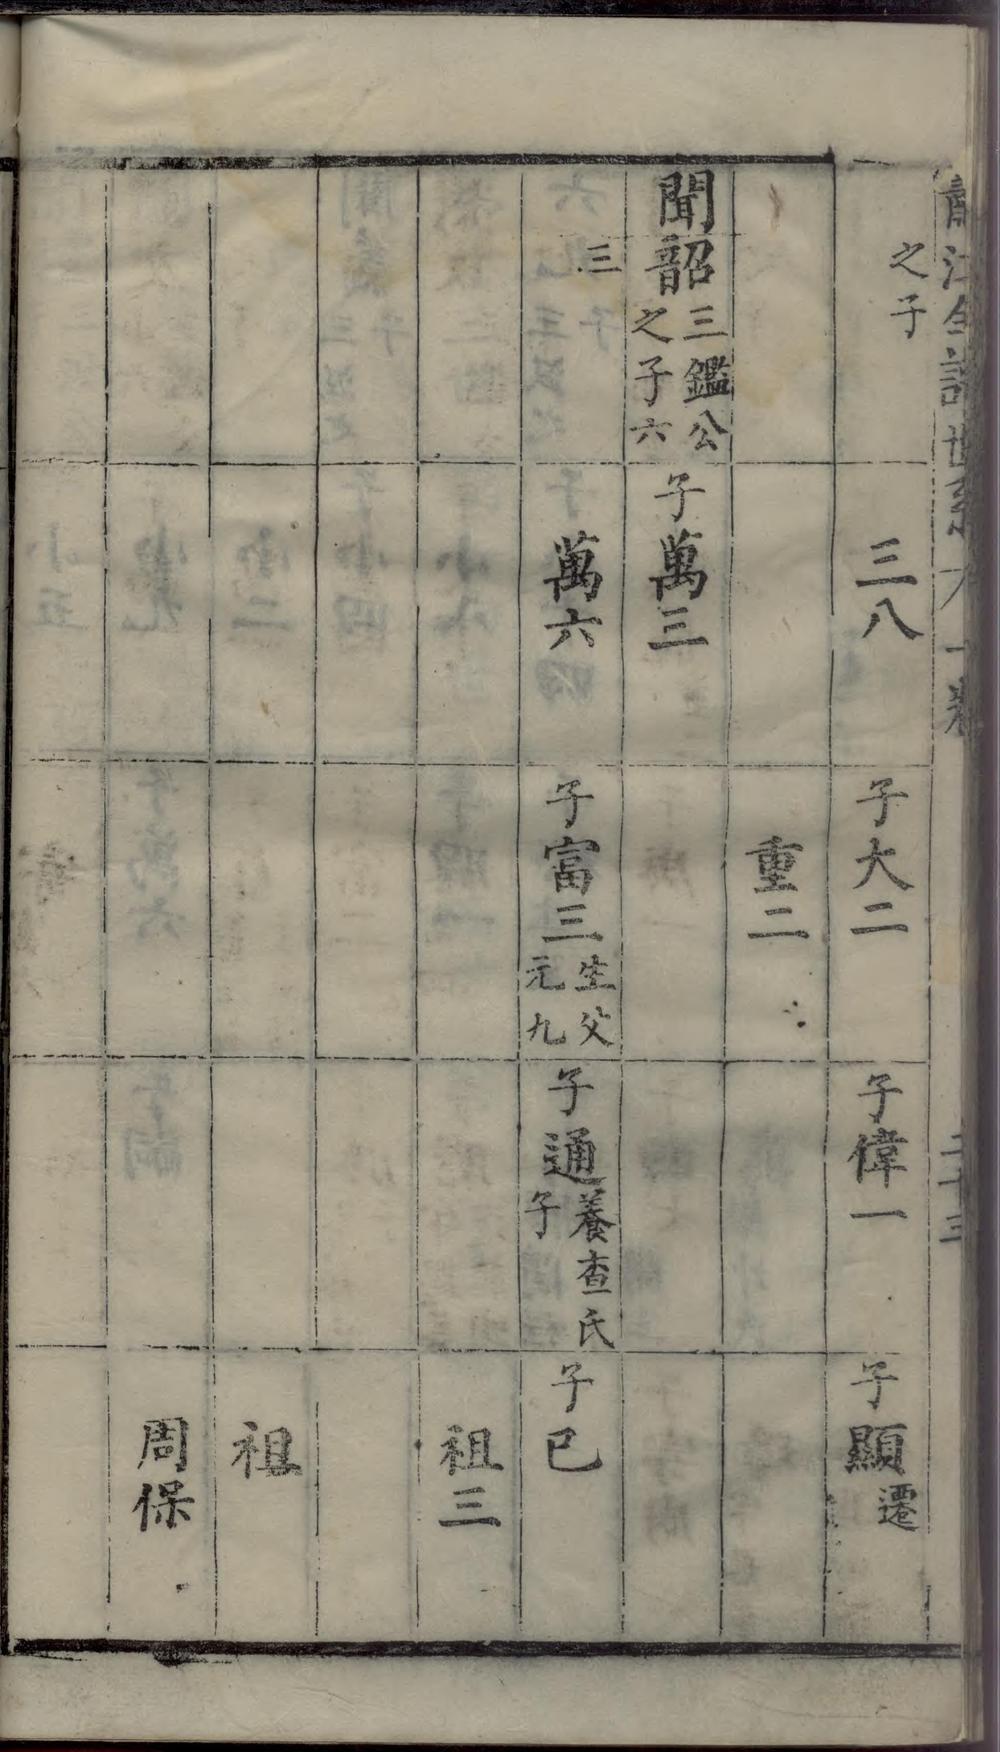 世系
卷
二十三
之子
三八
子大二
子偉一
子顯遷
重二
聞韶三鑑公之子六
子萬三
三
萬六
子富三生父元九
子通養查氏子
子已
祖三
祖
周保